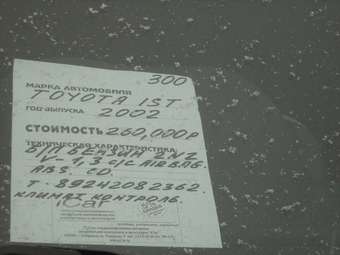 300
МАРКА АВТОМОБИЛЯ
TOYOTA IST
ГОД ВЫПУСКА 2002
СТОИМОСТЬ 260,000 Р
ТЕХНИЧЕСКАЯ ХАРАКТЕРИСТИКА:
Б/П БЕНЗИН 2NZ
V-1,3 O/C AIRBAG.
ABS. CD.
Т. 89242082362.
КЛИМАТ КОНТРОЛЬ.
Car